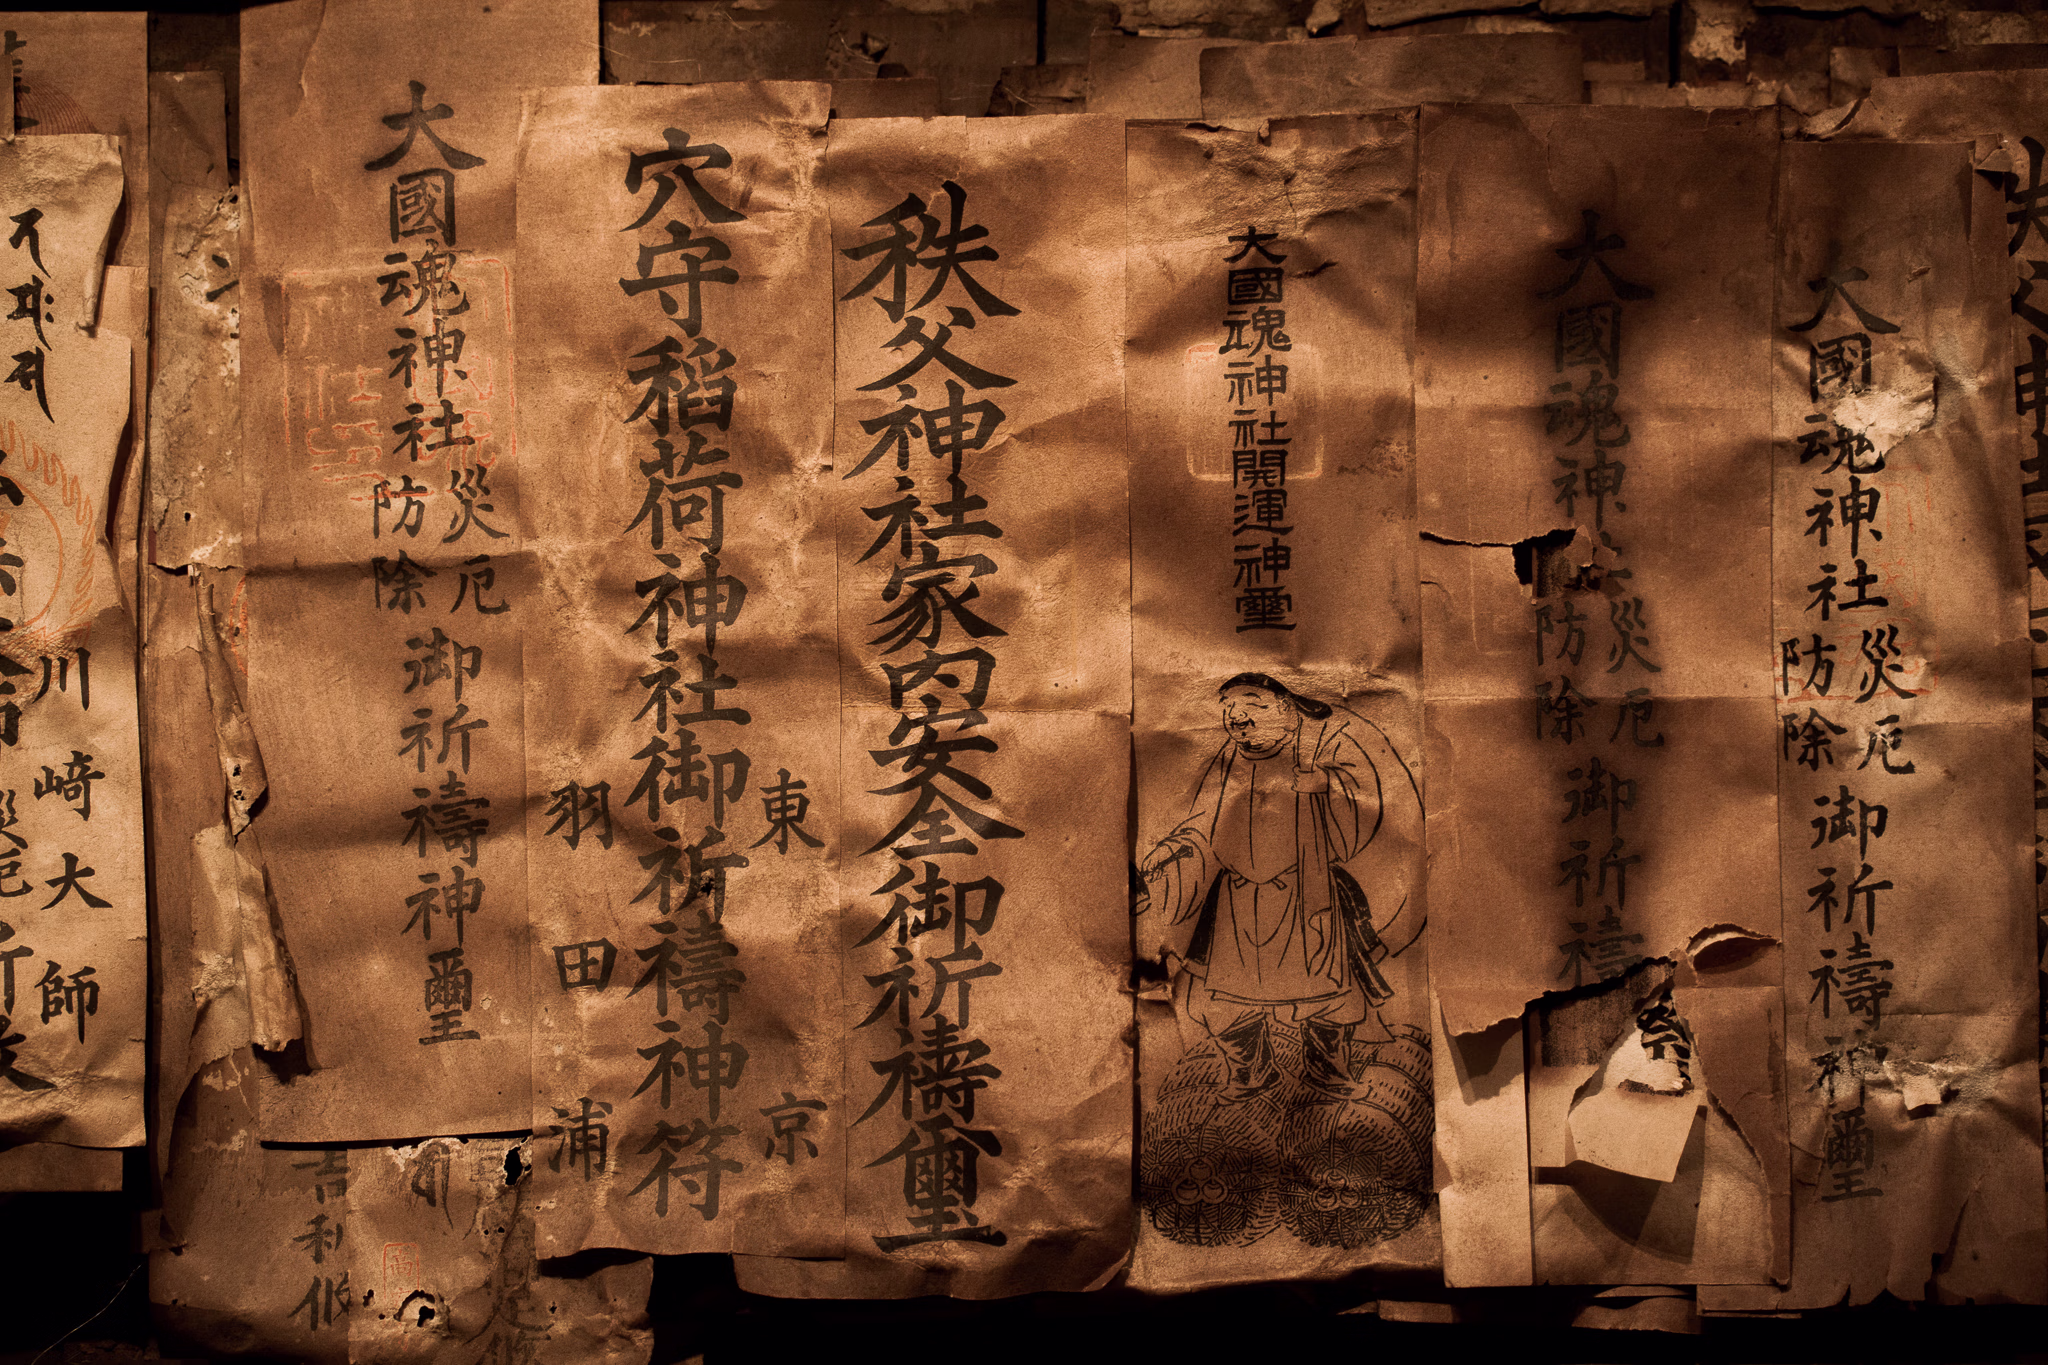 大國魂神社災厄防除御祈禱神璽
大國魂神社災厄防除御祈禱
大國魂神社開運神璽
秩父神社家内安全御祈禱神璽
東京
穴守稲荷神社御祈禱神符
羽田浦
大國魂神社災厄防除御祈禱神璽
川崎大師